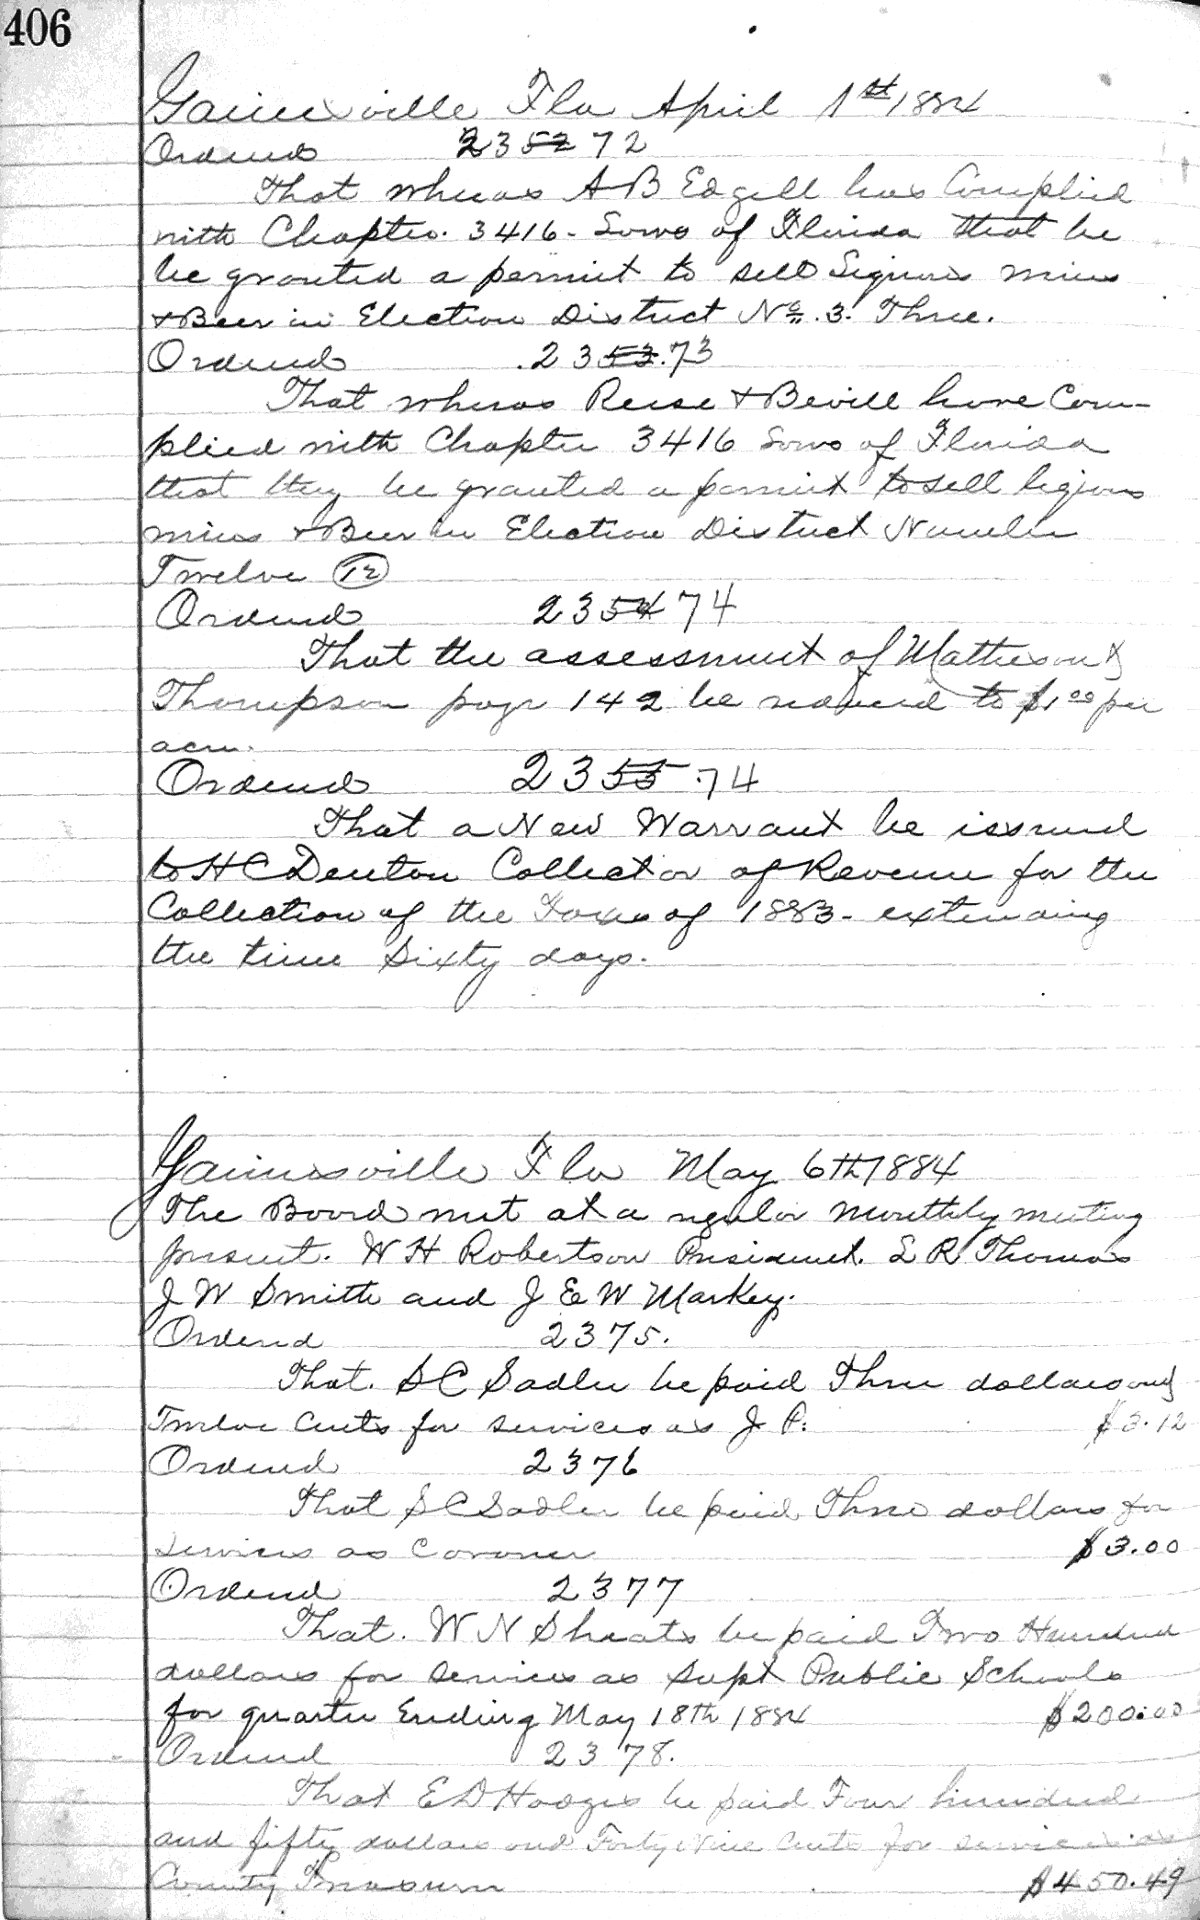 406
Gainesville Fla April 1st 1884
Ordered 235272
That whereas A B Edgell has Complied
with Chapter. 3416 - Laws of Florida that he
be granted a permit to sell Liquors wines
& Beer in Election District No. 3. Three.
Ordered .2353.73
That whereas Reese & Bevill have Com-
plied with Chapter 3416 Laws of Florida
that they be granted a permit to sell liquors
wines & Beer in Election District Number
Twelve (12)
Ordered 235474
That the assessment of Matheson &
Thompson page 142 be reduced to $1.00 per
acre.
Ordered 2355.74
That a New Warrant be issued
to H C Denton Collector of Revenue for the
Collection of the Taxes of 1883 - extending
the time Sixty days.
Gainesville Fla May 6th 1884
The Board met at a regular monthly meeting
present. W H Robertson President. L R Thomas
J W Smith and J E W Markey.
Ordered 2375.
That. S C Sadler be paid Three dollars and
Twelve Cents for services as J P. $3.12
Ordered 2376
That S C Sadler be paid Three dollars for
services as Coroner $3.00
Ordered 2377
That. W N Sheats be paid Two Hundred
dollars for services as Supt Public Schools
for quarter Ending May 18th 1884 $200.00
Ordered 2378.
That E D Hodges be paid Four hundred
and fifty dollars and Forty Nine Cents for services as
County Treasurer $450.49